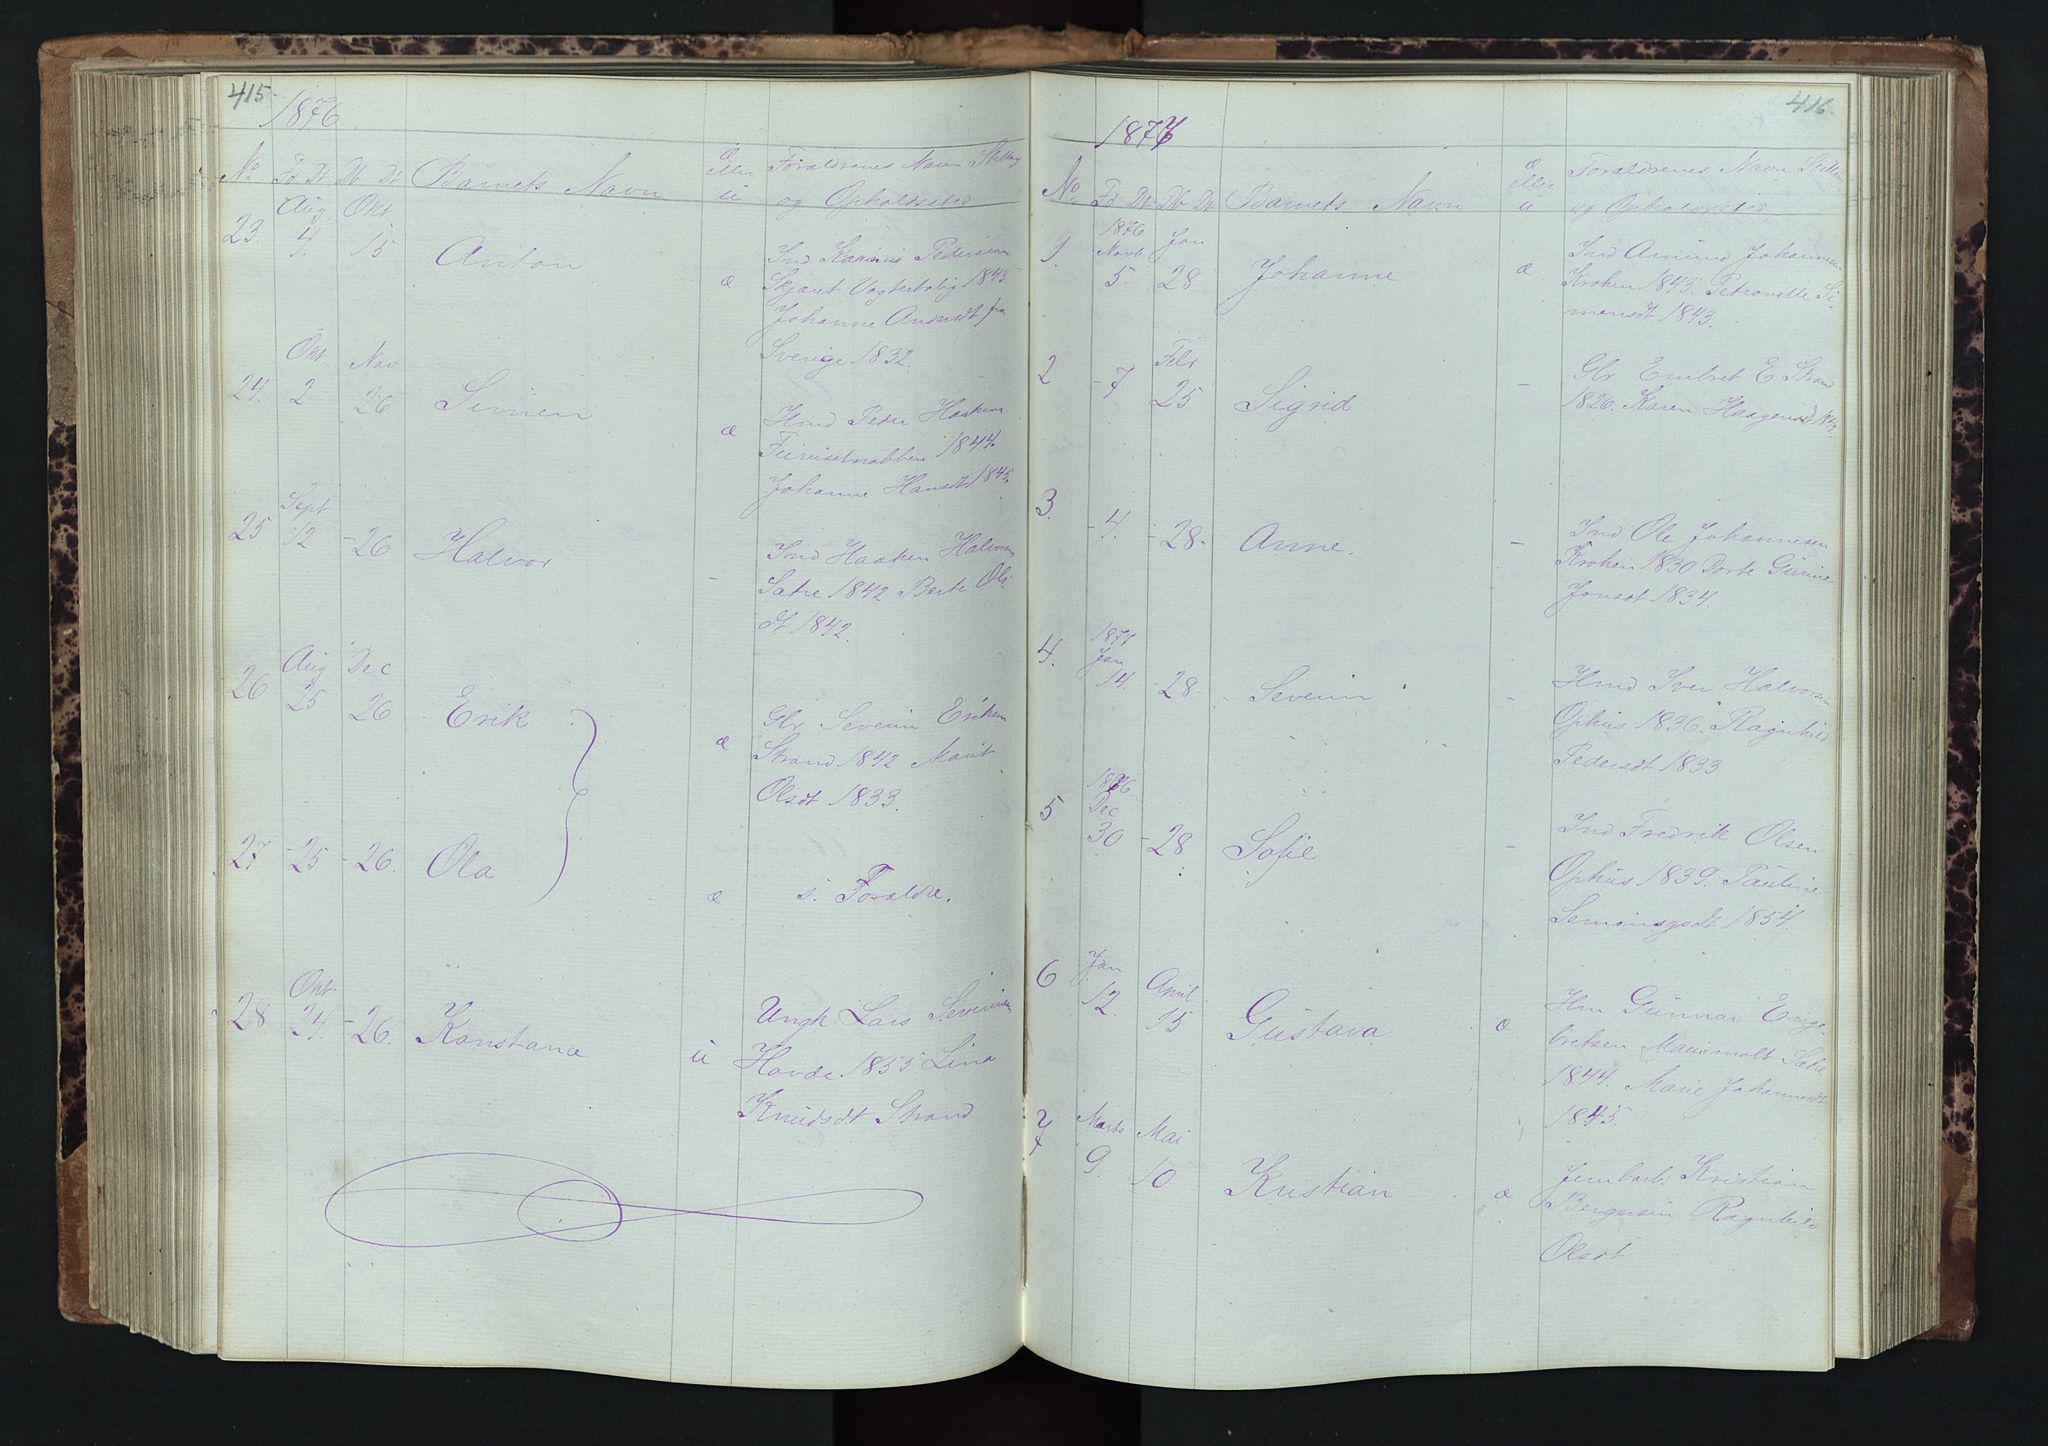 415
1876
No Fd Dt Db Dt Barnets Navn Æ eller U Forældrenes Navn Stilling og Opholdssted
Aug Okt
23. 4. 15 Anton æ Ind Karinus Pedersen
Skjæret Vogterbolig 1843
Johanne Andersdt fra
Sverige 1832.
Okt Nov
24. 2 26 Simen æ Hmd Peder Haaken
1844
Johanne Hansdt 1845.
Sept
25 12 - 26 Halvor - Ind Haaken Halvorsen
Sætre 1842 Berte Ols
dt 1842.
Aug Dec
26 25 26 Erik æ Gbr Severin Eriksen
Strand 1842 Marit
Olsdt 1833.
27 - 25 - 26. Ola æ s. Forældre.
Okt
28 24. - 26. Konstance u Ungk Lars Severinsen
Hovde 1855 Lina
Knudsdt Strand
416.
1877
No Fd Dt Db Dt Barnets Navn Æ eller U Forældrenes Navn Stilling og Opholdssted
1876
Novb Jan
1. 5. 28 Johanne æ Ind Amund Johannesen
Kroken 1843. Petronelle Si
mensdt 1843.
Febr
2 - 7 25 Sigrid - Gbr Embret E Strand
1826. Karen Haagensdt
3. - 4. - 28. Anne. - Ind Ole Johannesen
Kroken 1830 Dorte Gunne
Jonsdt 1834.
1877
Jan
4. 14. - 28 Severin - Hmd Iver Halvorsen
Ophus 1836. Ragnhild
Pedersdt 1833
1876
Dec
5 30 - 28. Sofie - Ind Fredrik Olsen
Ophus 1839. Pauline
1854.
Jan April
6 12. 15 Gustava æ Hm Gunnar Enge
bretsen Sætre
1844. Marie Johannesdt
1845.
Marts Mai
7 9. 10 Kristian æ Jernbarb: Kristian
Bergersen Ragnhild
Olsdt